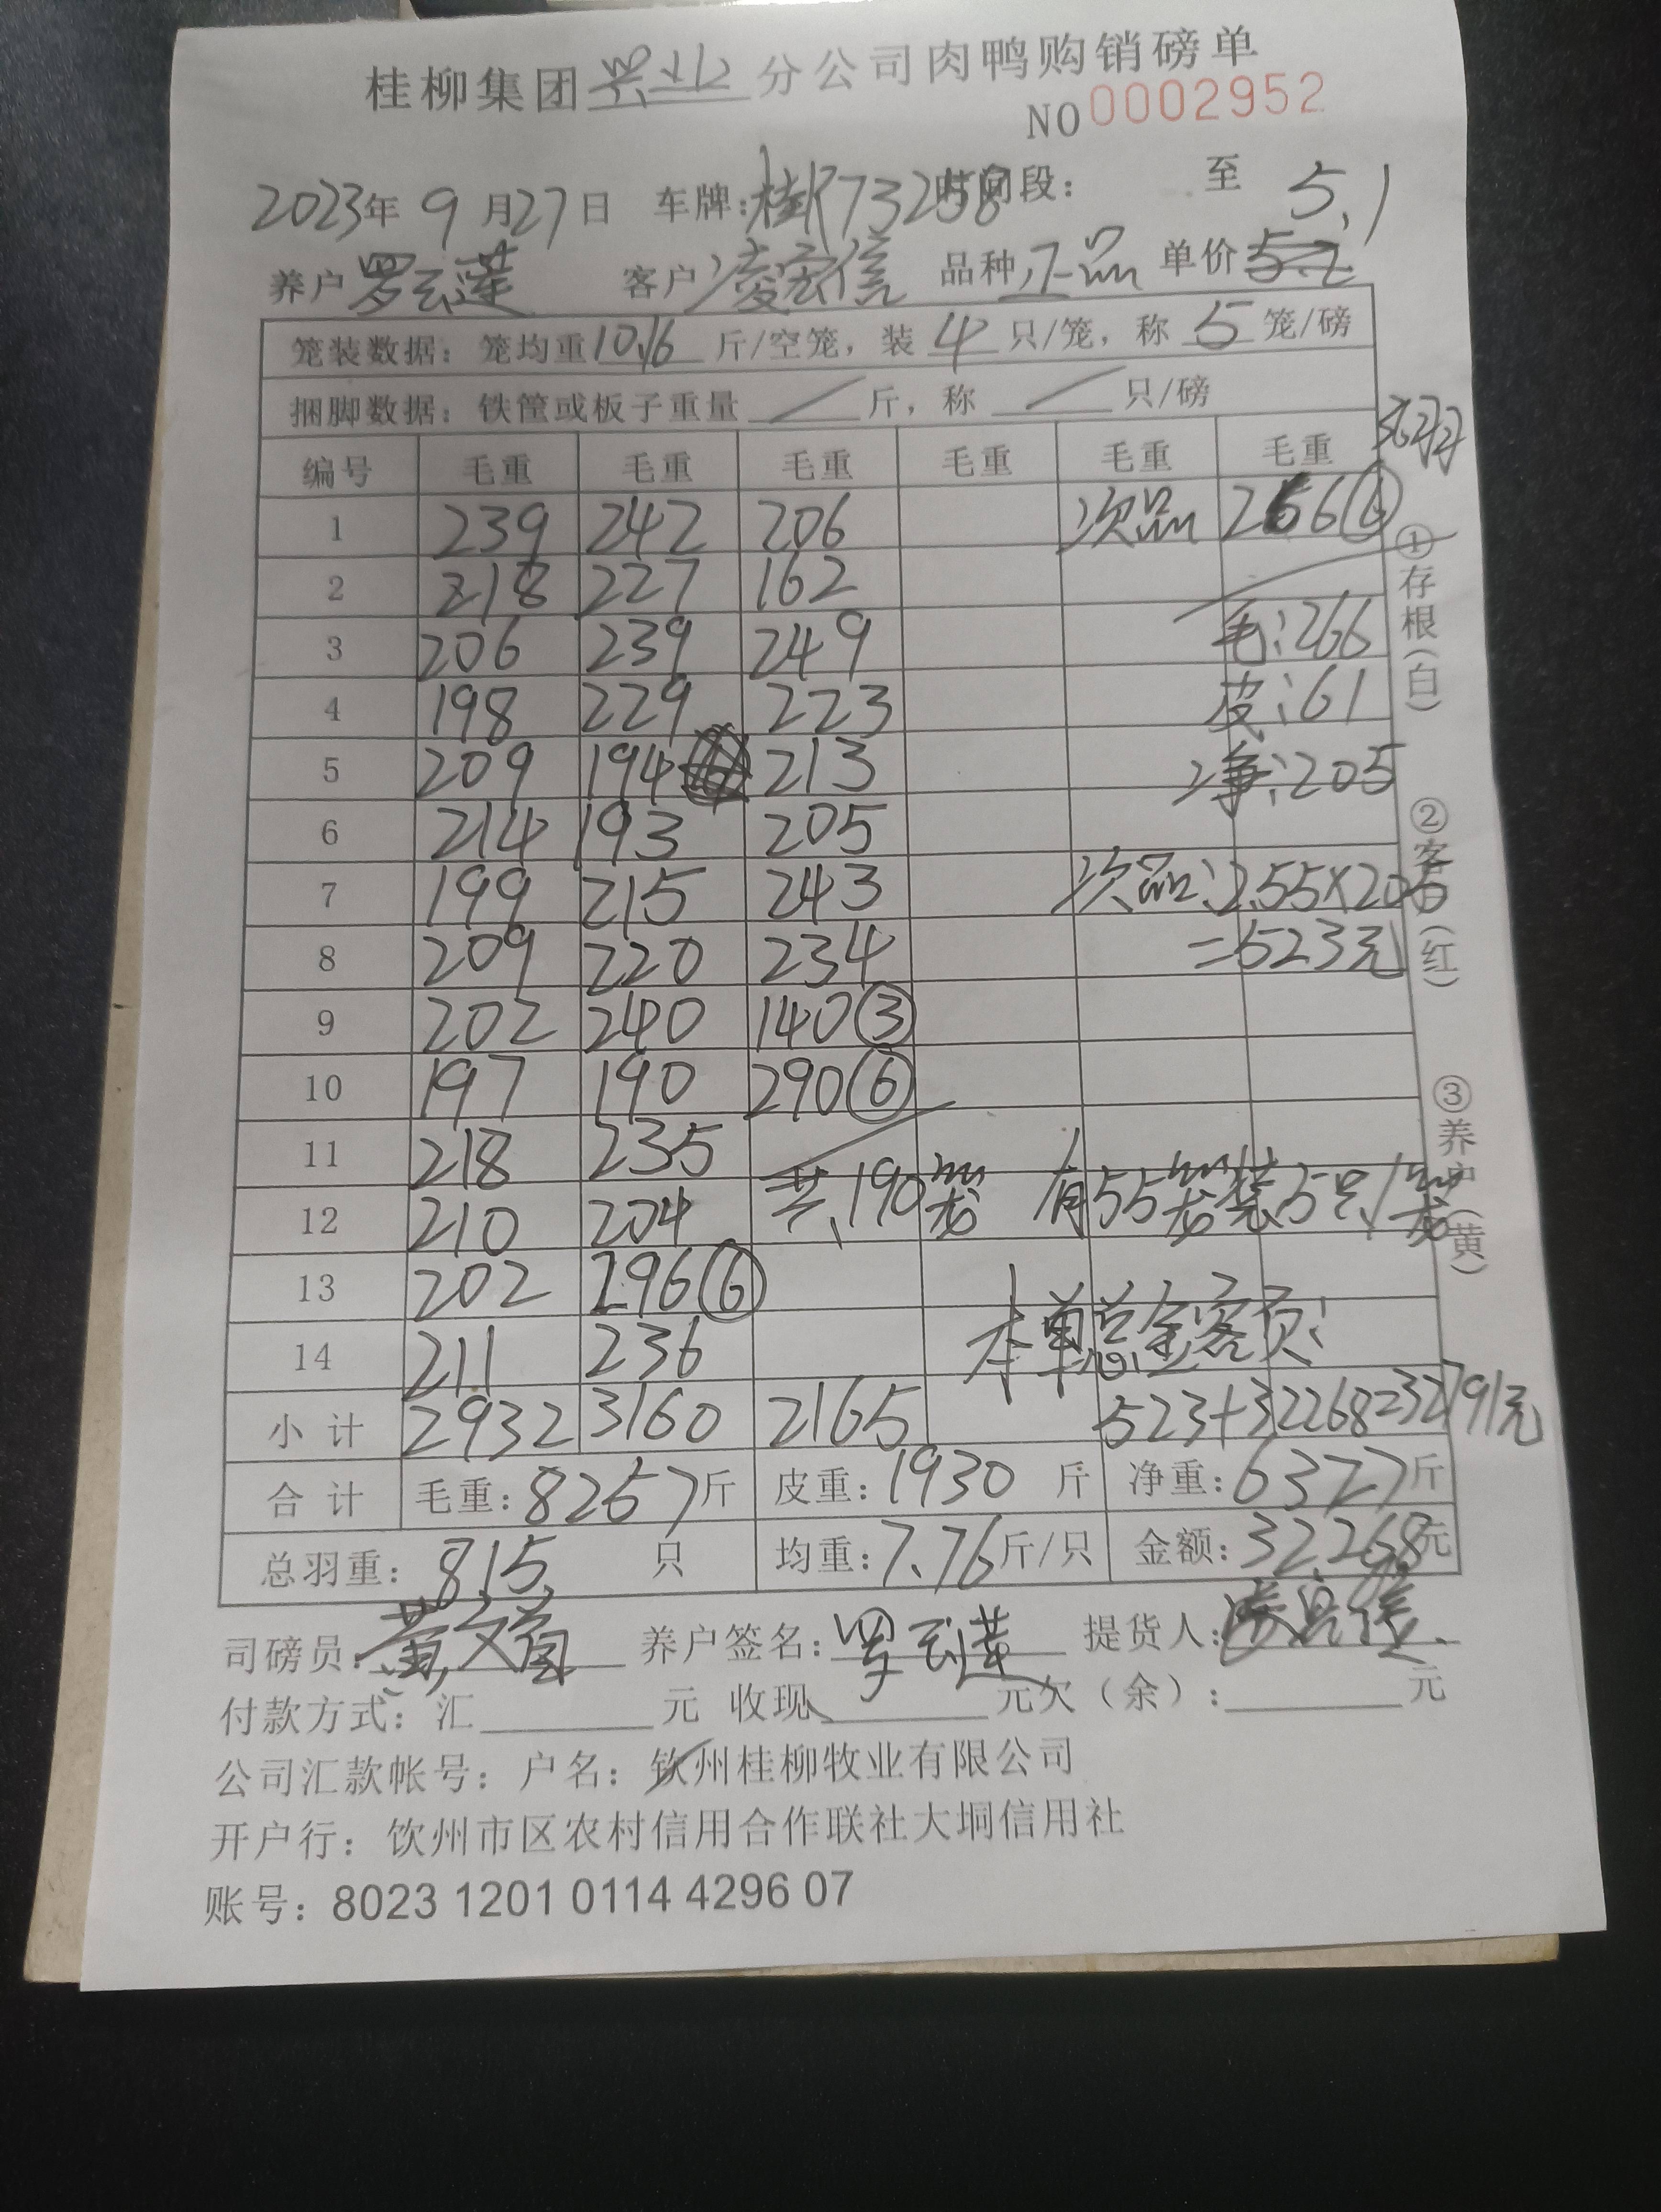 桂柳集团 兴业 分公司肉鸭购销磅单
NO 0002952
2023年 9 月 27 日 车牌: 桂R73258 时间段: 至
5.1
养户 罗云莲 客户 凌宏信 品种 正品 单价
笼装数据: 笼均重 10.16 斤/空笼, 装 4 只/笼, 称 5 笼/磅
捆脚数据: 铁筐或板子重量 / 斤, 称 / 只/磅
编号 毛重 毛重 毛重 毛重 毛重 毛重
1 239 242 206 次品 266 ⑥
2 218 227 162
3 206 239 249 毛: 266
4 198 229 223 皮: 61
5 209 194 213 净: 205
6 214 193 205
7 199 215 243 次品: 2.55×205
8 209 220 234 =523元
9 202 240 140 ③
10 197 190 290 ⑥
11 218 235
12 210 204 共190笼 有55笼装5只/笼
13 202 296 ⑥
14 211 236 本单总金额:
小计 2932 3160 2165 523+32268=32791元
合计 毛重: 8257 斤 皮重: 1930 斤 净重: 6327 斤
总羽重: 815 只 均重: 7.76 斤/只 金额: 32268 元
司磅员: 养户签名: 罗云莲 提货人:
付款方式: 汇 元 收现 元欠(余): 元
公司汇款帐号: 户名: 钦州桂柳牧业有限公司
开户行: 钦州市区农村信用合作联社大垌信用社
账号: 8023 1201 0114 4296 07
①存根(白)
②客户(红)
③养户(黄)